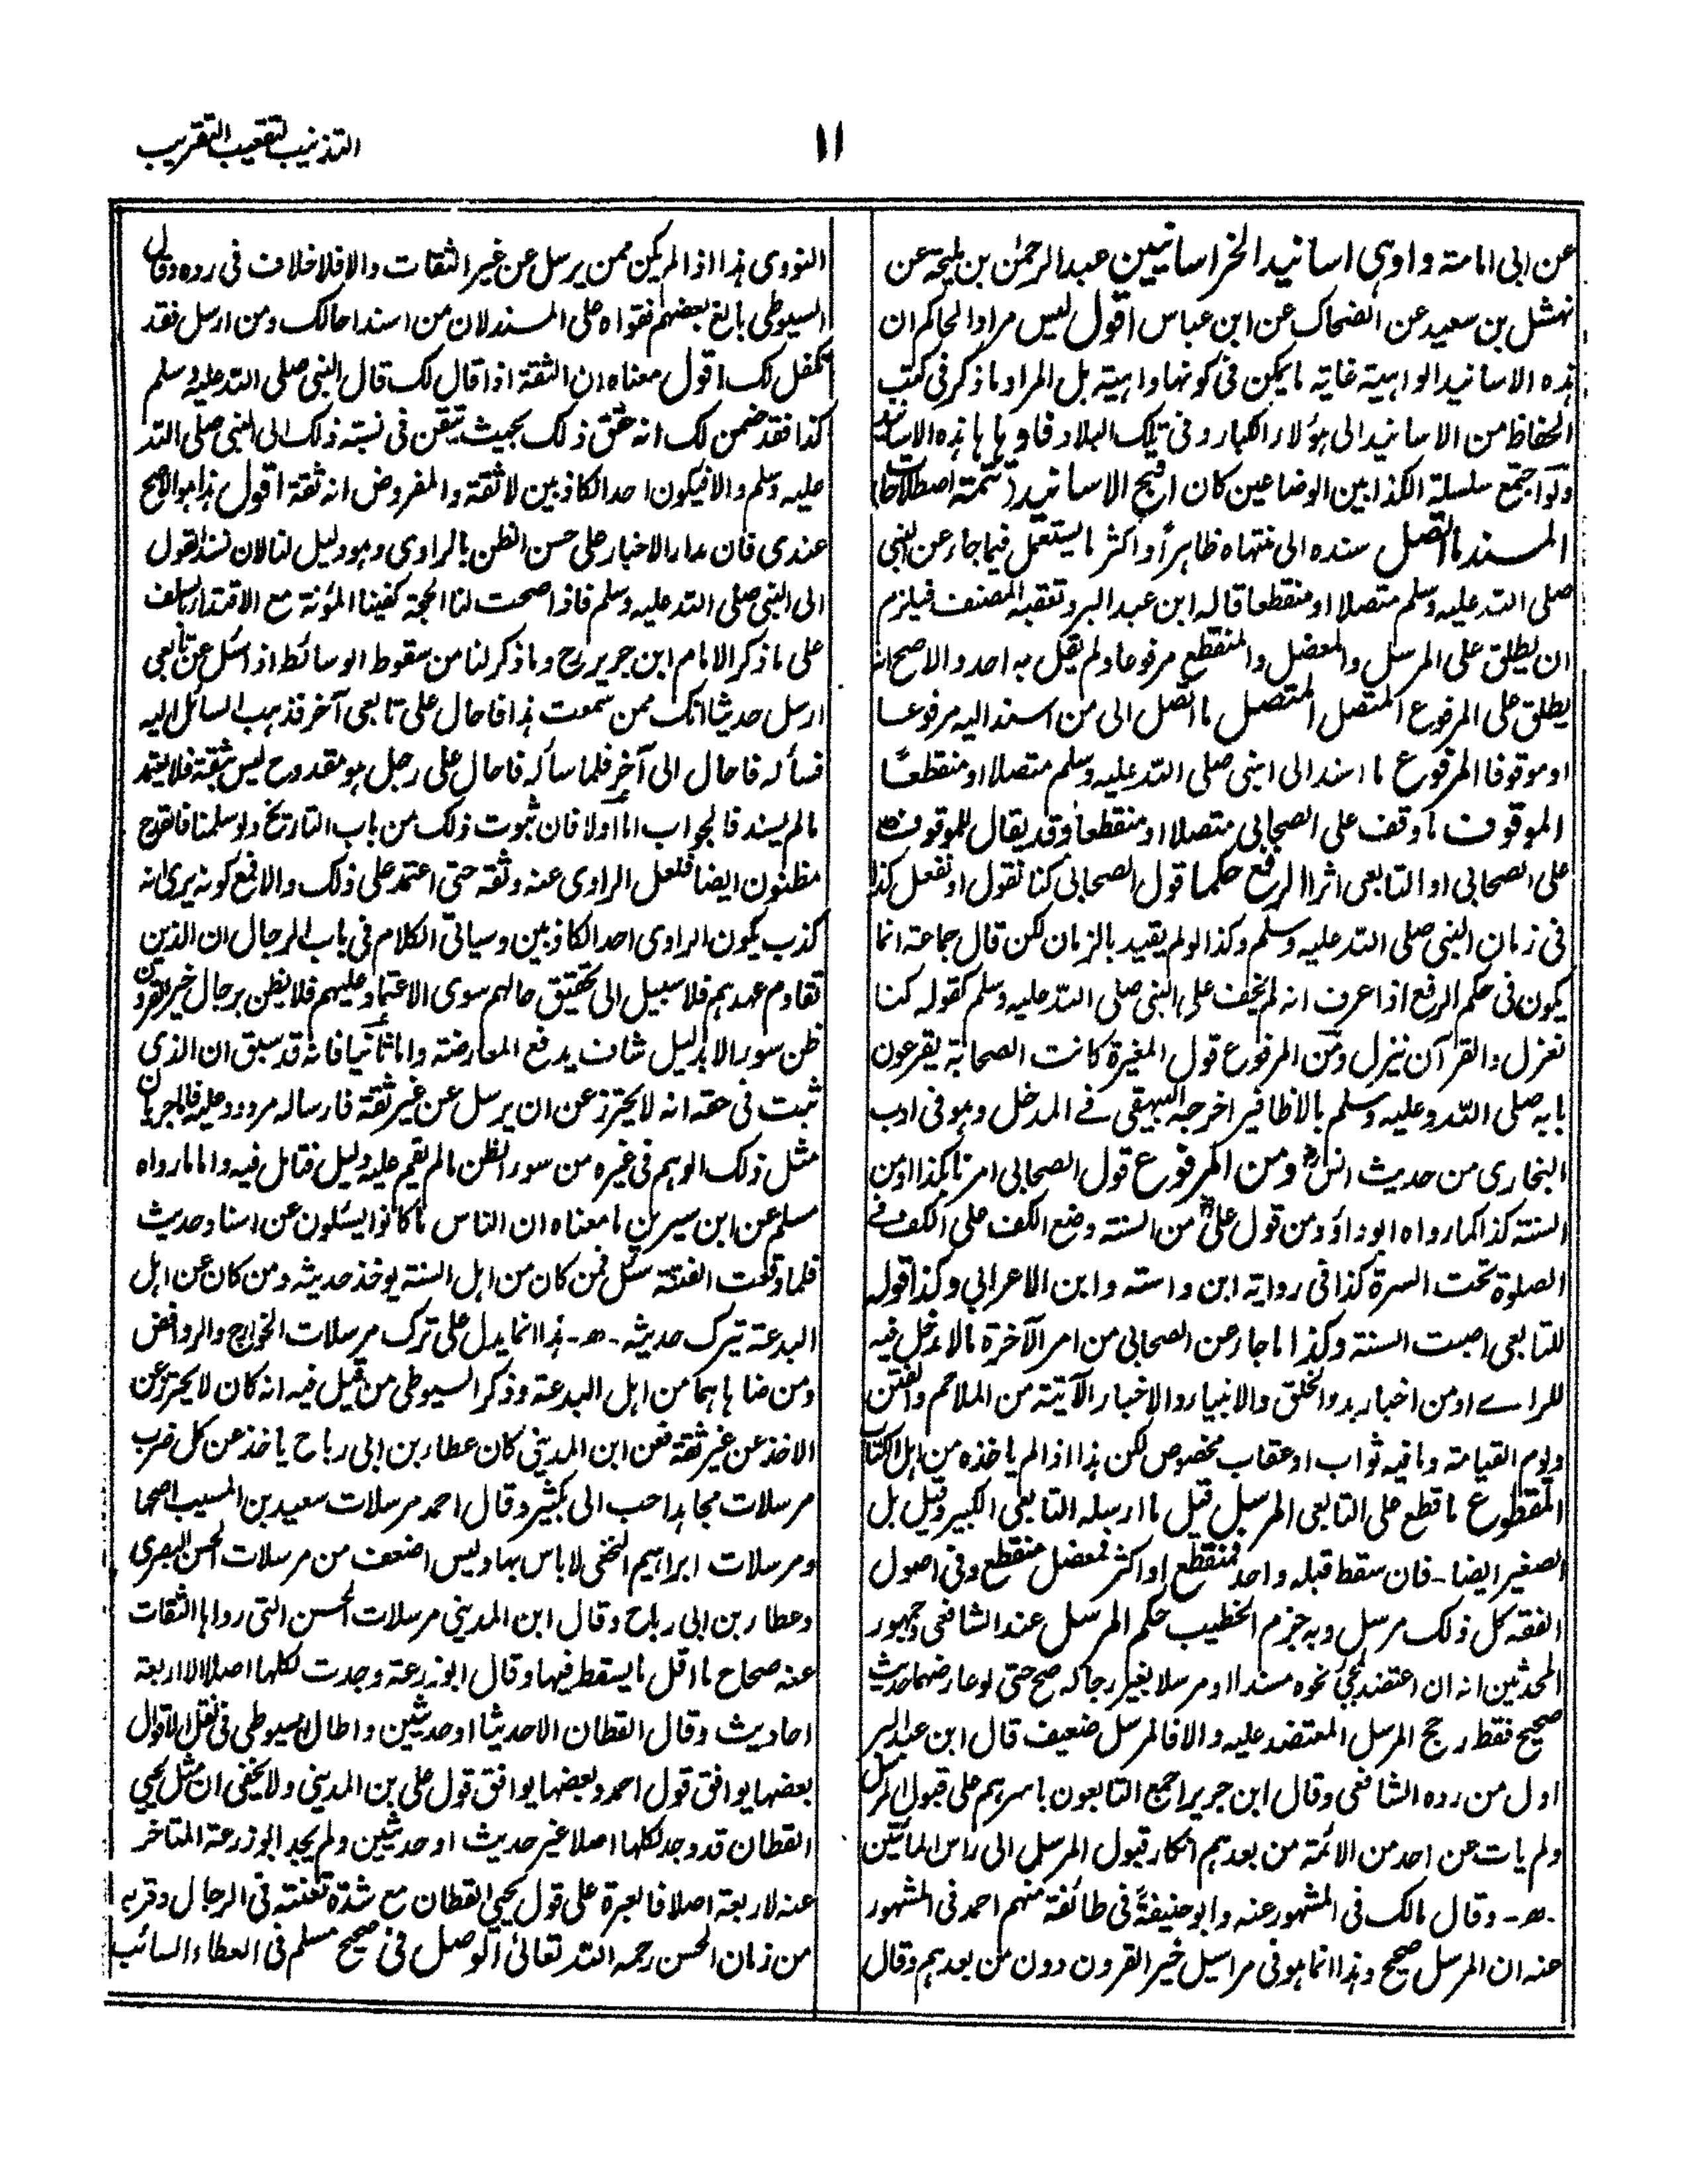 التذنیب لتعقیب التقریب
١١
عن ابی امامة واوهی اسانید الخراسانیین عبد الرحمٰن بن ملیحة عن
نهشل بن سعید عن الضحاک عن ابن عباس اقول لیس مراد الحاکم ان
هذه الاسانید الواهیة غایة ما یکن فی کونها واهیة بل المراد ما ذکر فی کتب
الحفاظ من الاسانید الی هؤلاء الکبار و فی تلک البلاد فاوهاها هذه الاسانید
ولو اجتمع سلسلة الکذابین الوضاعین کان اقبح الاسانید (تتمة اصطلاحات)
المسند ما اتصل سنده الی منتهاه ظاهراً واکثر ما یستعمل فیما جاء عن النبی
صلی الله علیه وسلم متصلا او منقطعا قاله ابن عبد البر وتعقبه المصنف فیلزم
ان یطلق علی المرسل والمعضل والمنقطع مرفوعا ولم یقل به احد والاصح انه
یطلق علی المرفوع المتصل المتصل ما اتصل الی من اسند الیه مرفوعا
او موقوفا المرفوع ما اسند الی النبی صلی الله علیه وسلم متصلا او منقطعًا
الموقوف ما وقف علی الصحابی متصلا او منقطعا وقد یقال للموقوف
علی الصحابی او التابعی اثرا الرفع حکما قول الصحابی کنا نقول او نفعل کذا
فی زمان النبی صلی الله علیه وسلم وکذا لو لم یقید بالزمان لکن قال جماعة انما
یکون فی حکم الرفع اذا عرف انه لم یخف علی النبی صلی الله علیه وسلم کقوله کنا
نعزل والقرآن ینزل ومن المرفوع قول المغیرة کانت الصحابة یقرعون
بابه صلی الله علیه وسلم بالاظافیر اخرجه البیهقی فے المدخل وهو فی ادب
البخاری من حدیث انس ومن المرفوع قول الصحابی امرنا بکذا او من
السنة کذا کما رواه ابو داؤد من قول علی من السنة وضع الکف علی الکف فے
الصلوة تحت السرة کذا فی روایة ابن داسته وابن الاعرابی وکذا قوله
للتابعی اصبت السنة وکذا ما جاء عن الصحابی من امر الآخرة مما لا مدخل فیه
للراے او من اخبار بدو الخلق والانبیاء والاخبار الآتیة من الملاحم والفتن
ویوم القیامة وما فیه ثواب او عقاب مخصوص لکن هذا اذا لم یاخذه من اهل الکتاب
المقطوع ما قطع علی التابعی المرسل قیل ما ارسله التابعی الکبیر وقیل بل
الصغیر ایضا - فان سقط قبله واحد فمنقطع او اکثر فمعضل منقطع وفی اصول
الفقه کل ذلک مرسل وبه جزم الخطیب حکم المرسل عند الشافعی وجمهور
المحدثین انه ان اعتضد بمجئ نحوه مسندا او مرسلا بغیر رجاله صح حتی لو عارضهما حدیث
صحیح فقط رجح المرسل المعتضد علیه والا فالمرسل ضعیف قال ابن عبد البر
اول من رده الشافعی وقال ابن جریر اجمع التابعون باسرهم علی قبول المرسل
ولم یات عن احد من الائمة من بعدهم انکار قبول المرسل الی راس المأتین
- ھ - وقال مالک فی المشهور عنه وابو حنیفة فی طائفة منهم احمد فی المشهور
عنه ان المرسل صحیح وهذا انما هو فی مراسیل خیر القرون دون من بعدهم وقال
النووی هذا اذا لم یکن ممن یرسل عن غیر الثقات والا فلا خلاف فی رده وقال
السیوطی بالغ بعضهم فقواه علی المسند لان من اسند احالک ومن ارسل فقد
تکفل لک اقول معناه ان الثقة اذا قال لک قال النبی صلی الله علیه وسلم
کذا فقد ضمن لک انه حقق ذلک بحیث تیقن فی نسبة ذلک الی النبی صلی الله
علیه وسلم والا فیکون احد الکاذبین لا ثقة والمفروض انه ثقة اقول هذا هو الاصح
عندی فان مدار الاخبار علی حسن الظن بالراوی وهو دلیل لنا لان نسند القول
الی النبی صلی الله علیه وسلم فاذا صحت لنا الحجة کفینا المؤنة مع الاقتداء بالسلف
علی ما ذکر الامام ابن جریر رح وما ذکر لنا من سقوط الوسائط اذا سئل عن تابعی
ارسل حدیثا انک ممن سمعت هذا فاحال علی تابعی آخر فذهب السائل الیه
فسأله فاحال الی آخر فلما سأله فاحال علی رجل هو مقدوح لیس بثقة فلا یعتمد
ما لم یسند فالجواب اما اولا فان ثبوت ذلک من باب التاریخ ولو سلمنا فالقدح
مظنون ایضا فلعل الراوی عنه وثقه حتی اعتمد علی ذلک والا فمع کونه یری انه
کذب یکون الراوی احد الکاذبین وسیاتی الکلام فی باب الرجال ان الذین
تقادم عهدهم فلا سبیل الی تحقیق حالهم سوی الاعتماد علیهم فلا یظن برجال خیر القرون
ظن سوء الا بدلیل شاف یدفع المعارضة واما ثانیا فانه قد سبق ان الذی
ثبت فی حقه انه لا یحترز عن ان یرسل عن غیر ثقة فارساله مردود علیه فالجریان
مثل ذلک الوهم فی غیره من سوء الظن ما لم یقم علیه دلیل فتامل فیه واما ما رواه
مسلم عن ابن سیرین ما معناه ان الناس ما کانوا یسئلون عن اسناد حدیث
فلما وقعت الفتنة سئل فمن کان من اهل السنة یوخذ حدیثه ومن کان عن اهل
البدعة تیرک حدیثه - ھ - هذا انما یدل علی ترک مرسلات الخوارج والروافض
ومن ضاهاهما من اهل البدعة وذکر السیوطی من قیل فیه انه کان لا یحترز عن
الاخذ عن غیر ثقة فعن ابن المدینی کان عطاء بن ابی رباح یاخذ عن کل ضرب
مرسلات مجاهد احب الی بکثیر وقال احمد مرسلات سعید بن المسیب اصحها
ومرسلات ابراهیم النخعی لا باس بها ولیس اضعف من مرسلات الحسن البصری
وعطاء بن ابی رباح وقال ابن المدینی مرسلات الحسن التی رواها الثقات
عنه صحاح ما اقل ما یسقط فیها وقال ابو زرعة وجدت لکلها اصلا الا اربعة
احادیث وقال القطان الا حدیثا او حدیثین واطال السیوطی فی نقل الاقوال
بعضها یوافق قول احمد وبعضها یوافق قول علی بن المدینی ولا یخفی ان مثل یحیی
القطان قد وجد لکلها اصلا غیر حدیث او حدیثین ولم یجد ابو زرعة المتاخر
عنه لاربعة اصلا فالعبرة علی قول یحیی القطان مع شدة تعنته فی الرجال وقربه
من زمان الحسن رحمه الله تعالیٰ الوصل فی صحیح مسلم فی العطاء السائب